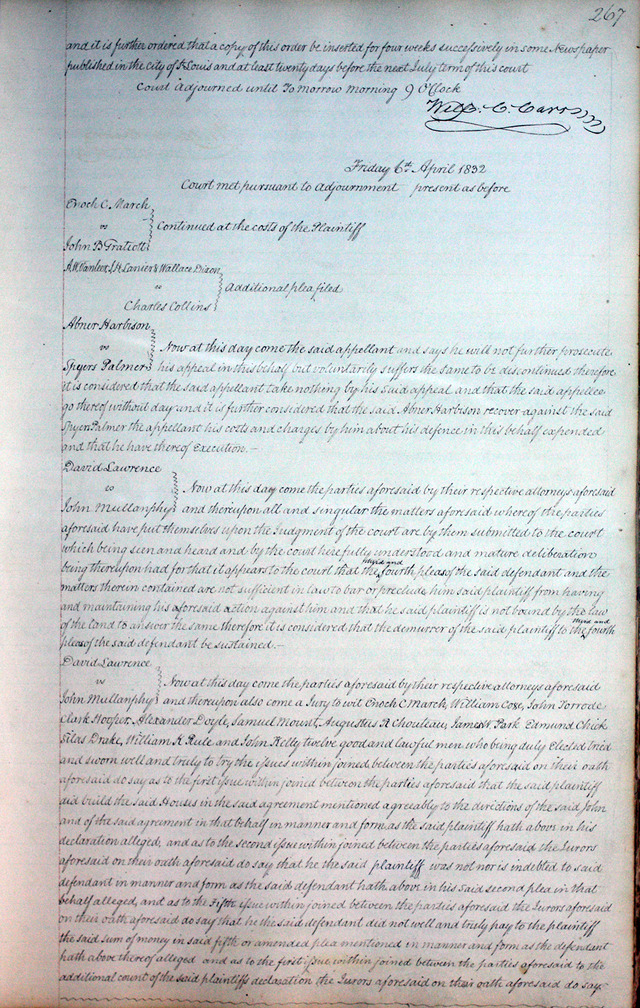 267
and it is further ordered that a copy of this order be inserted for four weeks successively in some Newspaper
published in the City of St Louis and at least twenty days before the next July term of this court
Court Adjourned until To Morrow Morning 9 O'Clock
Will: C. Carr
Friday 6th April 1832
Court met pursuant to Adjournment present as before
Enoch C. March
vs
Continued at the costs of the Plaintiff
John B
Lanier & Wallace Dixon
vs
Additional plea filed
Charles Collins
Abner Harbison
vs
Now at this day come the said appellant and says he will not further prosecute
Spyers Palmer his appeal in this behalf but voluntarily suffers the same to be discontinued therefore
it is considered that the said appellant take nothing by his said appeal and that the said appellee
go thereof without day and it is further considered that the said Abner Harbison recover against the said
Spyer Palmer the appellant his costs and charges by him about his defence in this behalf expended
and that he have thereof Execution. —
David Lawrence
vs
Now at this day come the parties aforesaid by their respective attorneys aforesaid
John Mullanphy and thereupon all and singular the matters aforesaid whereof the parties
aforesaid have put themselves upon the Judgment of the court are by them submitted to the court
which being seen and heard and by the court here fully understood and mature deliberation
being thereupon had for that it appears to the court that the third and fourth pleas of the said defendant and the
matters therein contained are not sufficient in law to bar or preclude him said plaintiff from having
and maintaining his aforesaid action against him and that he said plaintiff is not bound by the law
of the land to answer the same therefore it is considered that the demurrer of the said plaintiff to the third and fourth
pleas of the said defendant be sustained. —
David Lawrence
vs
Now at this day come the parties aforesaid by their respective attorneys aforesaid
John Mullanphy and thereupon also come a Jury to wit Enoch C March, William Coxe, John Torrode
Clark Hooper, Alexander Doyle, Samuel Mount, Augustus R Chouteau, James W Park Edmund Chick
Silas Drake, William K Rule and John Kelly twelve good and lawful men who being duly Elected tried
and sworn well and truly to try the issues within joined between the parties aforesaid on their oath
aforesaid do say as to the first issue within joined between the parties aforesaid that the said plaintiff
did build the said Houses in the said agreement mentioned agreeably to the directions of the said John
and of the said agreement in that behalf in manner and form as the said plaintiff hath above in his
declaration alleged, and as to the second issue within joined between the parties aforesaid the Jurors
aforesaid on their oath aforesaid do say that he the said plaintiff was not nor is indebted to said
defendant in manner and form as the said defendant hath above in his said second plea in that
behalf alleged, and as to the Fifth issue within joined between the parties aforesaid the Jurors aforesaid
on their oath aforesaid do say that he the said defendant did not well and truly pay to the plaintiff
the said sum of money in said fifth or amended plea mentioned in manner and form as the defendant
hath above thereof alleged and as to the first issue within joined between the parties aforesaid to the
additional count of the said plaintiffs declaration the Jurors aforesaid on their oath aforesaid do say